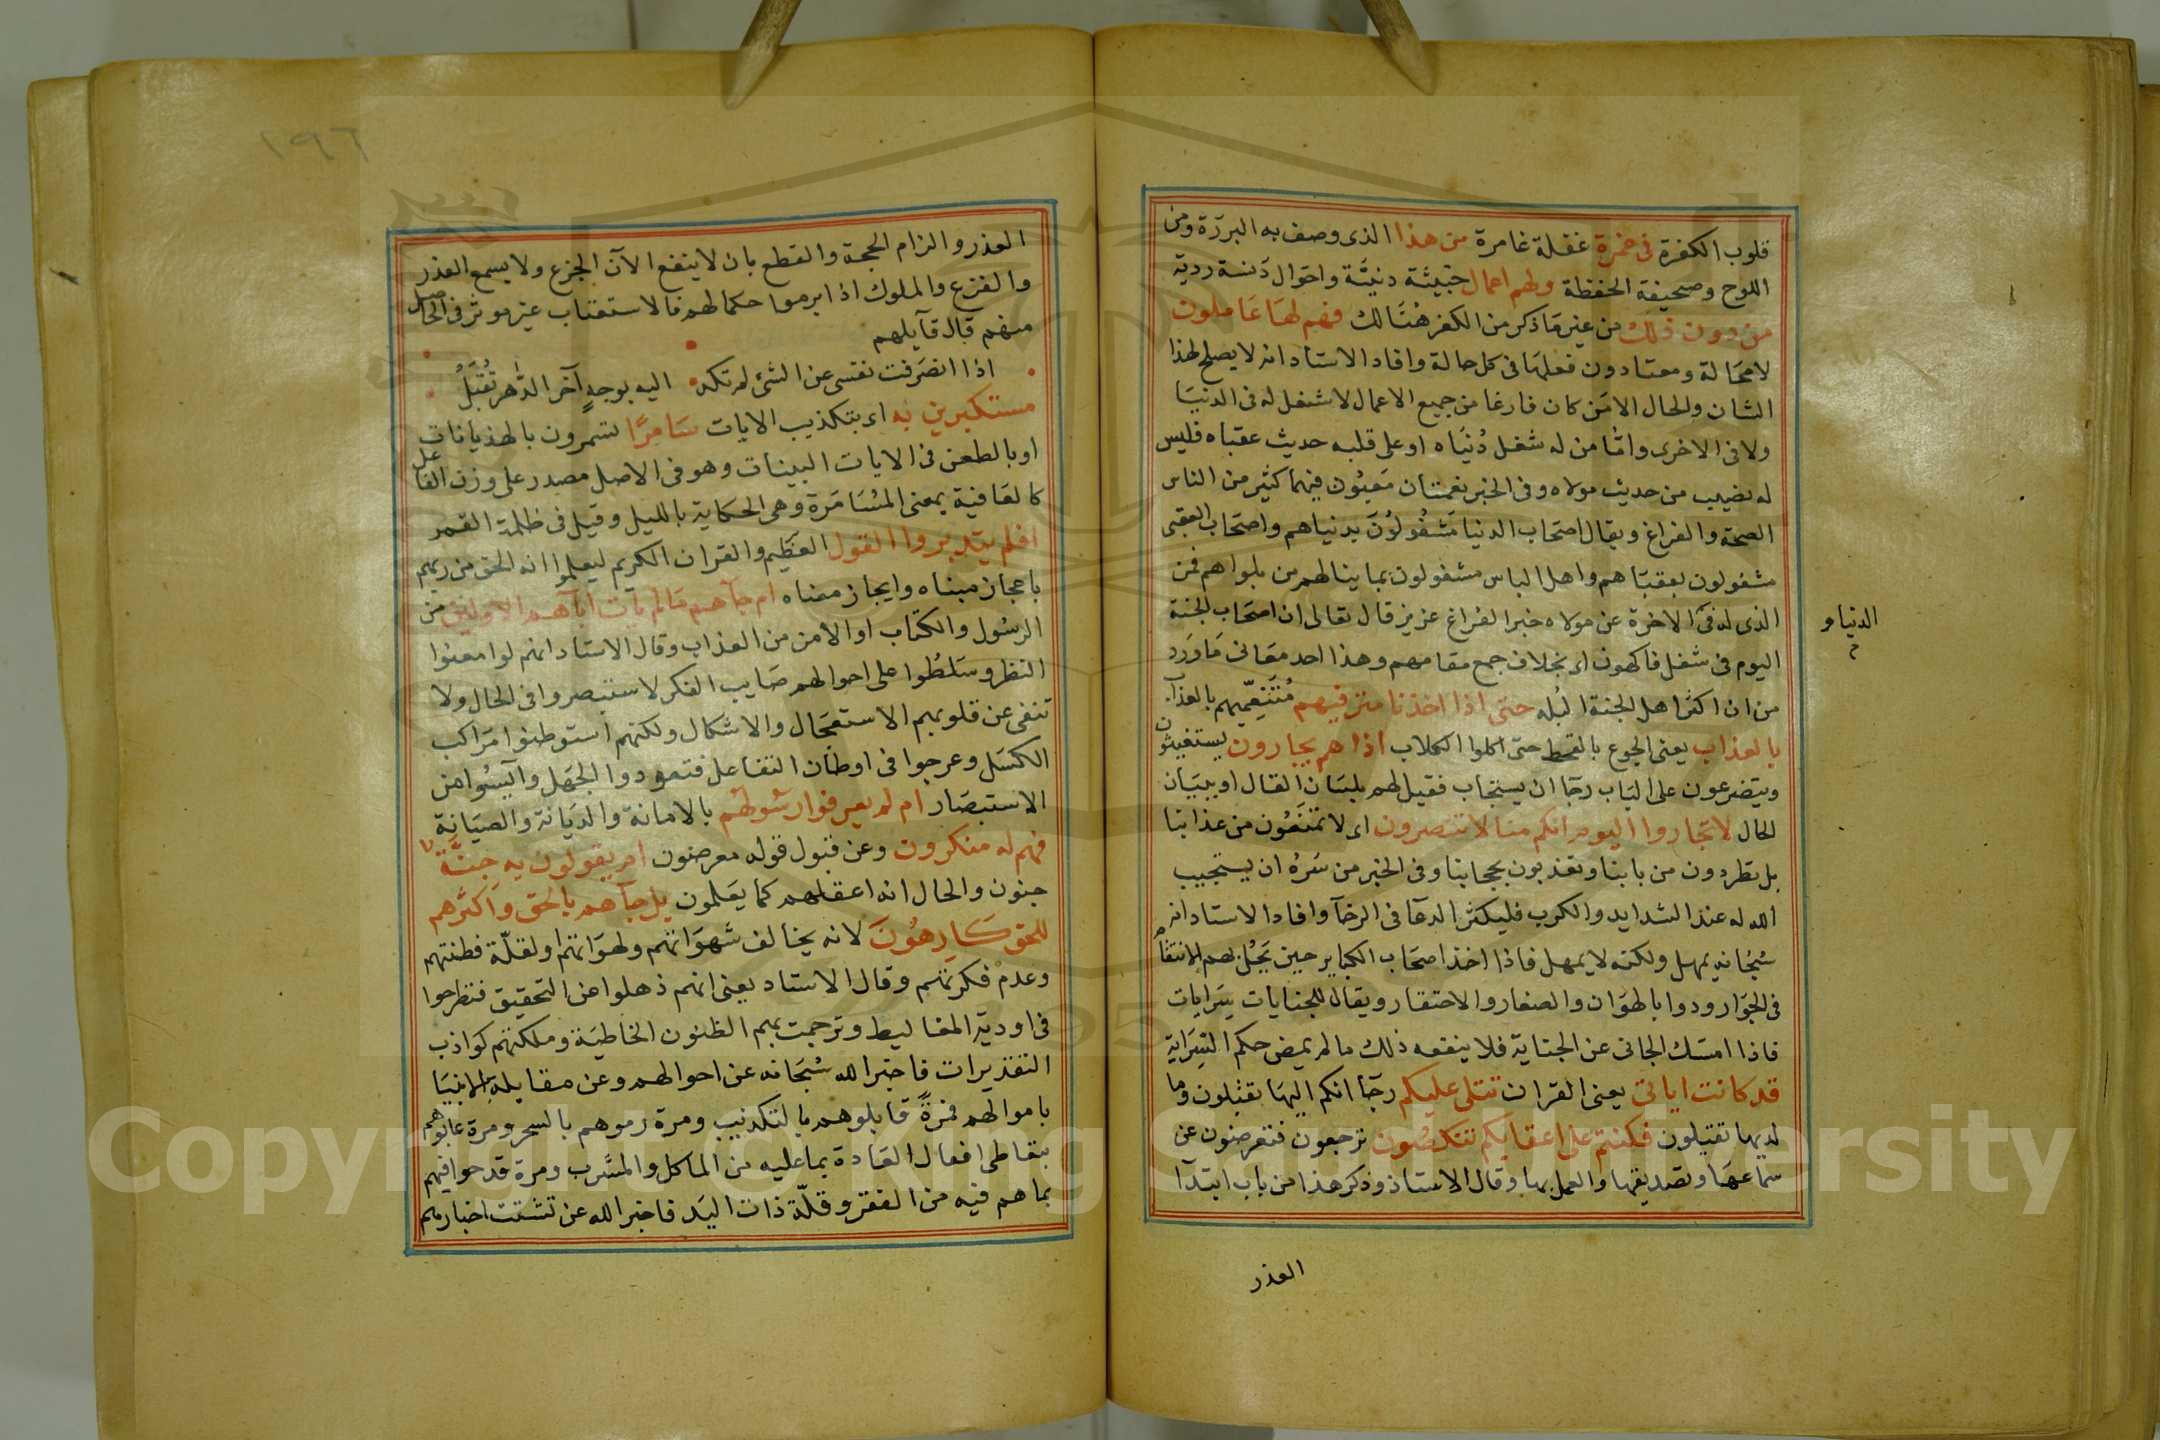 قلوب الكفرة في غمرة غفلة غامرة من هذا الذى وصف به البررة ومن
اللوح وصحيفة الحفظة ولهم اعمال خبيثة دنيّة واحوال دنسة رديّة
من دون ذلك من غير ما ذكر من الكفر هنالك فهم لها عاملون
لا محالة ومعتادون فعلها فى كل حالة وافاد الاستاد انه لا يصلح لهذا
الشان والحال الا من كان فارغا من جميع الاعمال لا شغل له فى الدنيا
ولا فى الاخرى وامّا من له شغل دُنياه او على قلبه حديث عقباه فليس
له نصيب من حديث مولاه وفى الخبر نعمتان مغبُون فيهما كثير من الناس
الصحة والفراغ ويقال اصحاب الدنيا مشغُولوُنَ بدنياهم واصحاب العقبى
مشغولون بعقباهم واهل الباس مشغولون بما ينالهم من بلواهم فمن
الدنيا و
الذى له فى الاخرة عن مولاه خبر الفراغ عزيز قال تعالى ان اصحاب الجنة
اليوم فى شغل فاكهون اى بخلاف جمع مقامهم وهذا احد معانى ما ورد
من ان اكثر اهل الجنة البُله حتى اذا اخذنا مترفيهم مُتنَعِّميهم بالعذاب
بالعذاب يعنى الجوع بالقحط حتى اكلوا الكلاب اذا هم يجارون يستغيثون
ويتضرعون على الباب رجآ ان يستجاب فقيل لهم بلسان القال او ببيان
الحال لا تجاروا اليوم انكم منا لا تنصرون اى لا تمنعُون من عذابنا
بل تطردون من بابنا وتعذبون بحجابنا وفى الخبر من سَرهُ ان يستجيب
الله له عند الشدايد والكرب فليكثر الدعا فى الرخآ وافاد الاستاد انه
سُبحانه يمهل ولكنه لا يهمل فاذا اخذ اصحاب الكباير حين يَحُل بهم الانتقام
فى الجوار ودوا بالهوان والصغار والاحتقار ويقال للجنايات سِرَايات
فاذا امسَك الجانى عن الجناية فلا ينفعه ذلك ما لم يمض حكم السِرَاية
قد كانت اياتى يعنى القران تتلى عليكم رجآ انكم اليها تقبلون وما
لديها تقتبلون فكنتم على اعقابكم تنكصُون ترجعون فتعرضون عن
سماعها وتصديقها والعمل بها وقال الاستاذ وذكر هذا من باب ابتدآ
العذر
١٩٦
العذر والزام الحجة والقطع بان لا ينفع الآن الجزع ولا يسمع العذر
والفزع والملوك اذا ابرموا حكما لهم فالاستعتاب غير موثر فى الحاصل
منهم قال قآيلهم
اذا انصَرفت نفسى عن الشئ لم تكد اليه بوجهٍ آخر الدّهر تُقبَلُ
مستكبرين به اى بتكذيب الايات سَامِرًا تسمرون بالهذيانات
او بالطعن فى الايات البينات وهو فى الاصل مصدر على وزن الفاعل
كالعافية بمعنى المُسَامَرة وهى الحكاية بالليل وقيل فى ظلمة القمر
افلم يتدبروا القول العَظيم والقران الكريم ليعلموا انه الحق من ربهم
باعجاز مبناه وايجاز معناه ام جآهم مالم يات ابآهم الاولين من
الرسُول والكتاب او الامن من العذاب وقال الاستاد انهم لو امعنوا
النظر وسَلطُوا على احوالهم صَايب الفكر لاستبصروا فى الحال ولا
تنفى عن قلوبهم الاستعجال والاشكال ولكنهم استوطنوا مَراكب
الكسَل وعرجوا فى اوطان التغافل فتعودوا الجَهل وآيسُوا من
الاستبصَار ام لم يعرفوا رسُولهُم بالامانة والدَيانة والصيَانة
فهم له منكرون وعن قبول قوله معرضون ام يقولون به جنّة
جنون والحال انه اعقلهم كما يَعلمون بل جآهم بالحق واكثرهم
للحق كَارِهُونَ لانه يخالف شهوَاتهم ولهوَاتهم ولقلّة فطنتهم
وعدم فكرتهم وقال الاستاد يعنى انهم ذهلوا عن التحقيق فتطرحوا
فى اودية المغاليط وترجمت بهم الظنون الخاطيَة وملكتهم كواذب
التقديرات فاخبر الله سُبحَانه عن احوالهم وعن مقابلة الانبيَا
باموالهم فمرةً قابلوهم بالتكذيب ومرة رموهم بالسحر ومرة عابوهم
بتعاطى افعال العَادة بما عليه من الماكل والمشرب ومرة قدحوا فيهم
بما هم فيه من الفقر وقلّة ذات اليَد فاخبر الله عن تشتت اخبارهم
Copyright © King Saud University